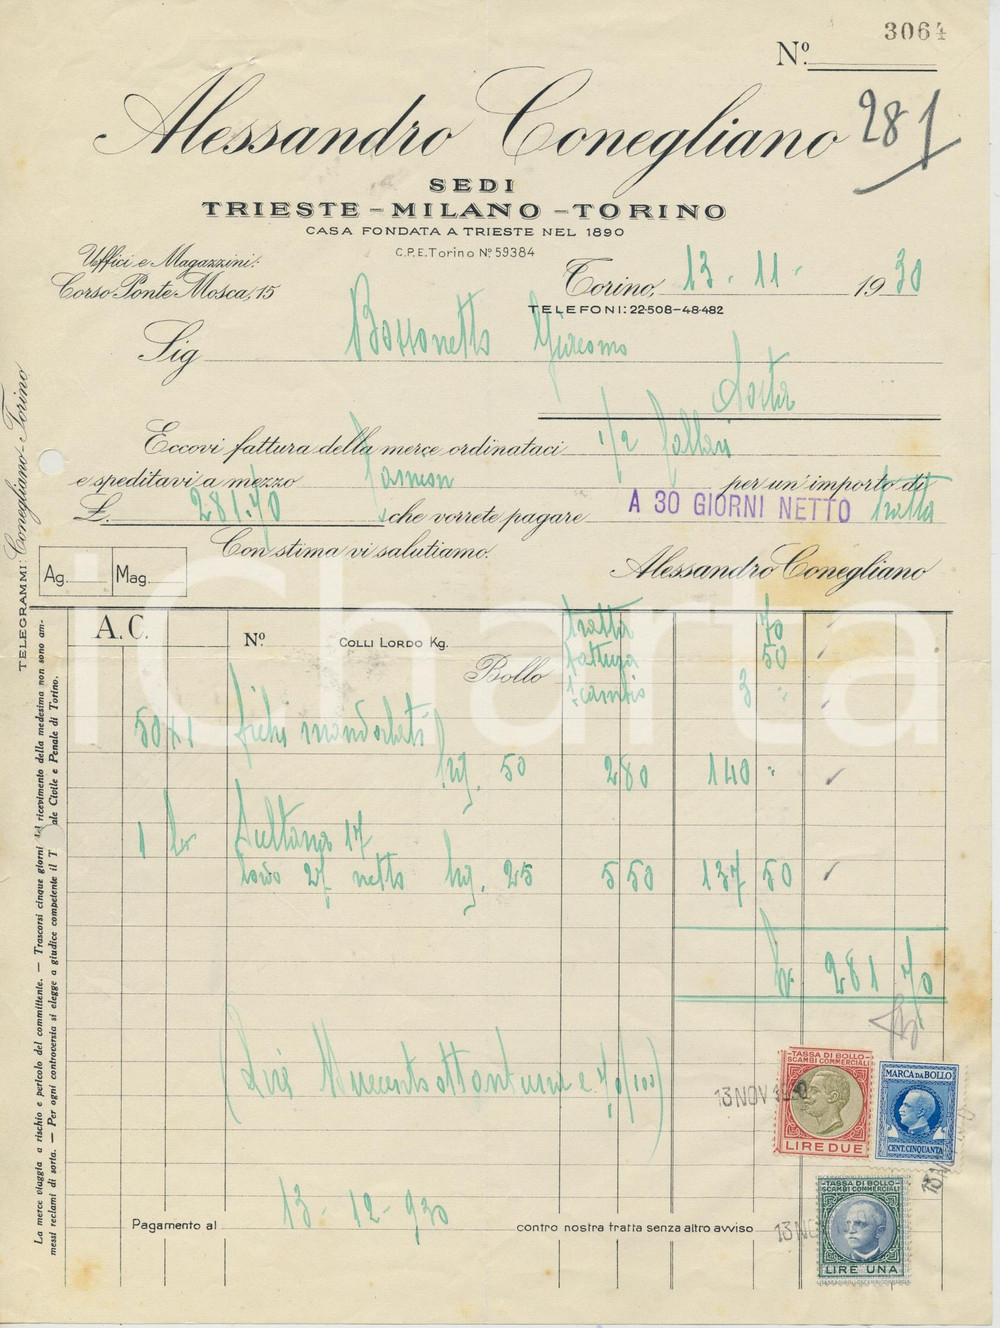 3064
Nº.
Alessandro Conegliano
281
SEDI
TRIESTE - MILANO - TORINO
CASA FONDATA A TRIESTE NEL 1890
C.P.E. Torino Nº 59384
Uffici e Magazzini:
Corso Ponte Mosca, 15
Torino, 13 - 11 - 1930
TELEFONI: 22-508-48-482
Sig Giacomo
Aosta
Eccovi fattura della merce ordinataci 1/2
e speditavi a mezzo per un'importo di
£. 281.70 che vorrete pagare A 30 GIORNI NETTO tratta
Con stima vi salutiamo.
Alessandro Conegliano
Ag. Mag.
TELEGRAMMI: Conegliano-Torino
A. C. Nº COLLI LORDO Kg.
Bollo
tratta 70
fattura 50
scambio 3 "
50/1 fichi mandorlati
Kg. 50 280 140 "
1 Sultana 17
lordo 27 netto kg. 25 550 137 50
281 70
(Lire Duecentoottantuna e 70/100)
La merce viaggia a rischio e pericolo del committente. — Trascorsi cinque giorni dal ricevimento della medesima non sono am-
messi reclami di sorta. — Per ogni controversia si elegge a giudice competente il T ale Civile e Penale di Torino.
TASSA DI BOLLO
SCAMBI COMMERCIALI
LIRE DUE
13 NOV 1930
MARCA DA BOLLO
CENT. CINQUANTA
TASSA DI BOLLO
SCAMBI COMMERCIALI
LIRE UNA
13 NO
Pagamento al 13 - 12 - 930 contro nostra tratta senza altro avviso
iCharta